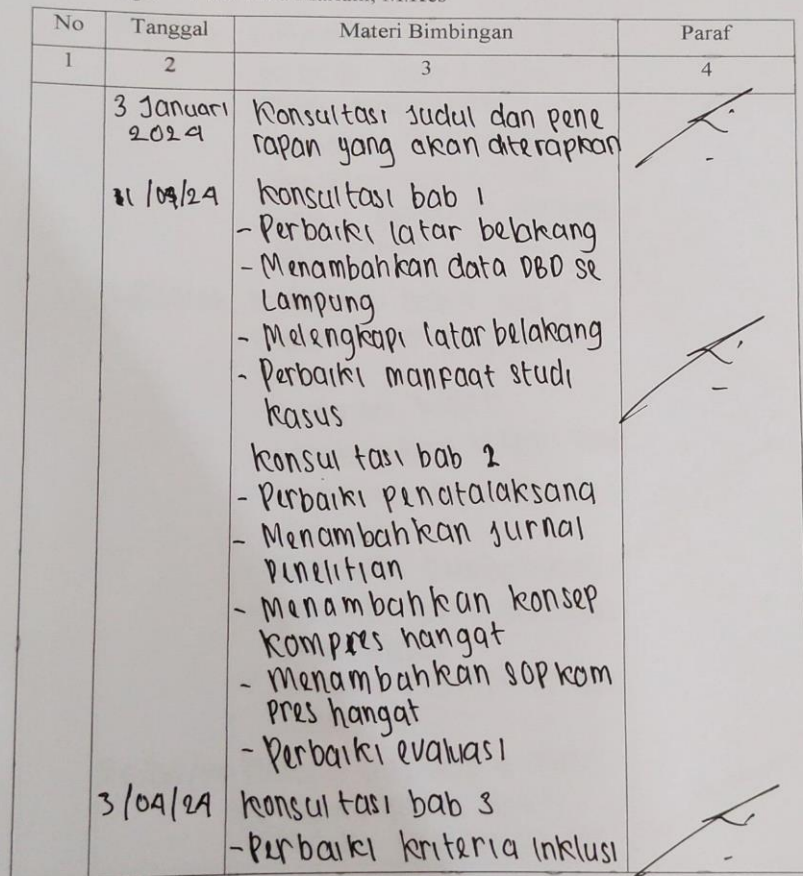 No Tanggal Materi Bimbingan Paraf
1 2 3 4
3 Januari Konsultasi Judul dan pene
2024 rapan yang akan diterapkan
Konsultasi bab 1
- Perbaiki latar belakang
- Menambahkan data DBD se
Lampung
- Melengkapi latar belakang
- Perbaiki manfaat studi
kasus
Konsultasi bab 2
- Perbaiki penatalaksana
- Menambahkan Jurnal
penelitian
- Menambahkan konsep
kompres hangat
- Menambahkan SOP kom
pres hangat
- Perbaiki evaluasi
3/04/24 Konsultasi bab 3
- Perbaiki kriteria inklusi